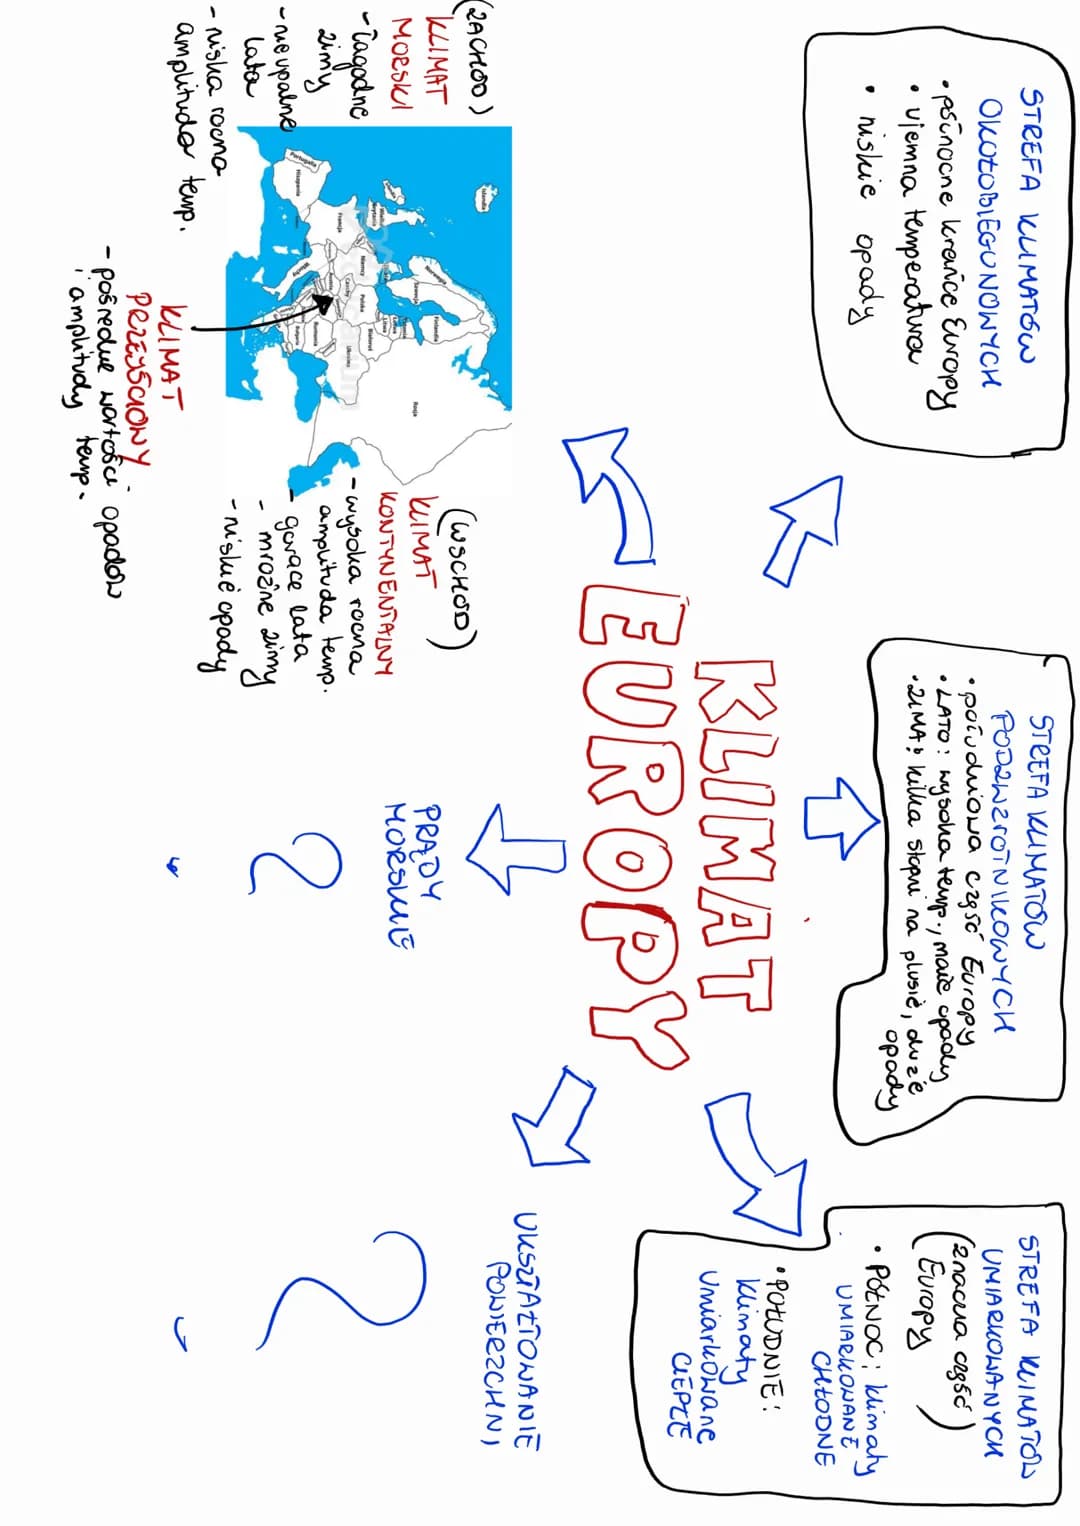 STREFA KLIMATÓW
OKOŁOBIEGUNOWYCH
• północne krańce Europy
• ujemna temperatura
• niskie opady
STREFA KLIMATÓW
PODZWROTNIKOWYCH
• południowa część Europy
• LATO: wysoka temp., małe opady
• ZIMA: kilka stopni na plusie, duże
opady
STREFA KLIMATÓW
UMIARKOWANYCH
(znaczna część
Europy)
• PÓŁNOC: klimaty
UMIARKOWANE
CHŁODNE
• POŁUDNIE:
klimaty
umiarkowane
CIEPŁE
KLIMAT
EUROPY
(ZACHÓD)
KLIMAT
MORSKI
- łagodne
zimy
- nieupalne
lata
- niska roczna
amplituda temp.
Islandia
Norwegia
Szwecja
Finlandia
Rosja
Wielka
Brytania
Niemcy
Polska
Białoruś
Ukraina
Litwa
Czechy
Francja
Rumunia
Bułgaria
Włochy
Hiszpania
Portugalia
(WSCHÓD)
KLIMAT
KONTYNENTALNY
- wysoka roczna
amplituda temp.
- gorące lata
- mroźne zimy
- niskie opady
KLIMAT
PRZEJŚCIOWY
- pośrednie wartości opadów
i amplitudy temp.
PRĄDY
MORSKIE
?
UKSZTAŁTOWANIE
POWIERZCHNI
?